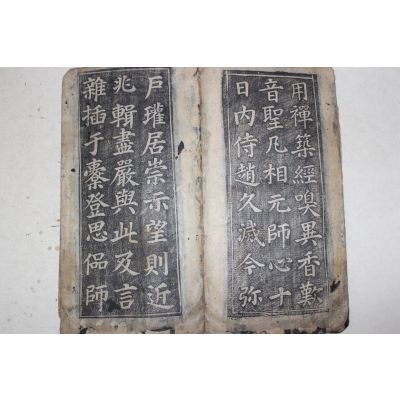 用禪築經嗅異香歎
音聖凡相元師心十
日内侍趙久滅今弥
戶璀居崇示望則近
兆輯盡嚴與此及言
雜插于橐登思侶師